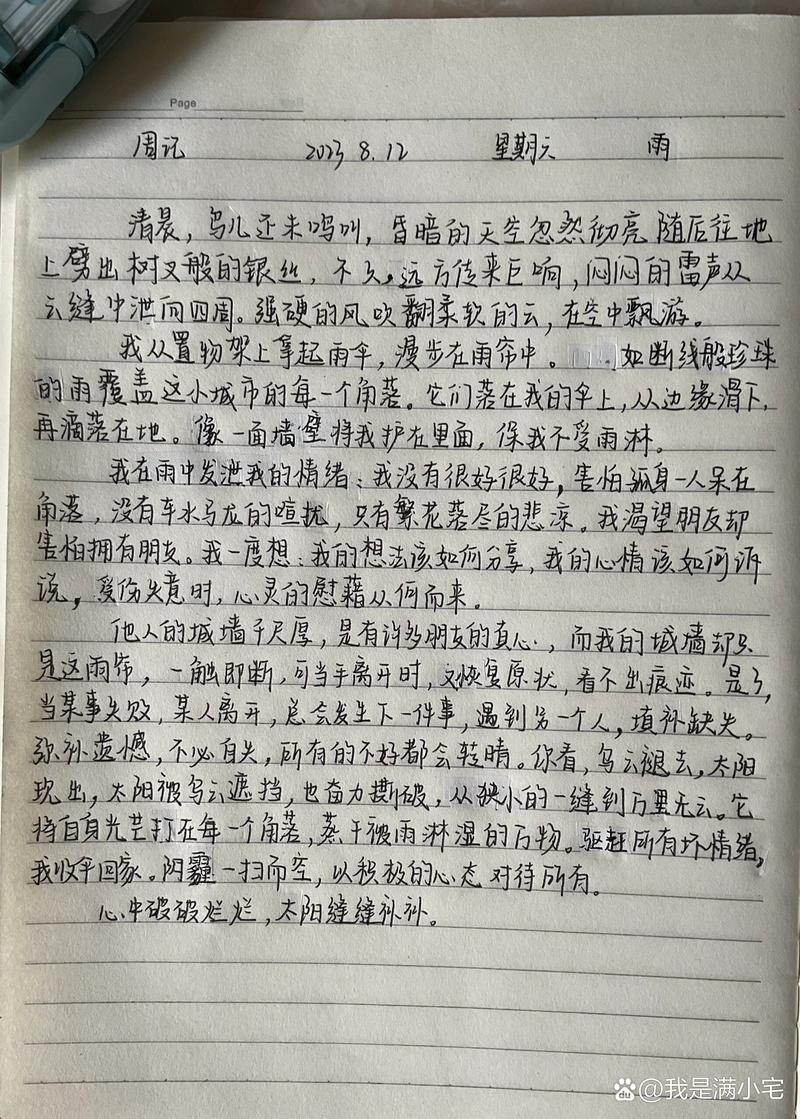 Page
周记 2023 8.12 星期六 雨
清晨，鸟儿还未鸣叫，昏暗的天空忽然彻亮随后往地
上劈出树叉般的银丝，不久，远方传来巨响，闷闷的雷声从
云缝中泄向四周。强硬的风吹翻柔软的云，在空中飘游。
我从置物架上拿起雨伞，漫步在雨帘中。如断线般珍珠
的雨覆盖这小城市的每一个角落。它们落在我的伞上，从边缘滑下，
再滴落在地。像一面墙壁将我护在里面，保我不受雨淋。
我在雨中发泄我的情绪：我没有很好很好，害怕孤身一人呆在
角落，没有车水马龙的喧扰，只有繁花落尽的悲凉。我渴望朋友却
害怕拥有朋友。我一度想：我的想法该如何分享，我的心情该如何诉
说，受伤失意时，心灵的慰藉从何而来。
他人的城墙千尺厚，是有许多朋友的真心，而我的城墙却只
是这雨帘，一触即断，可当手离开时，又恢复原状，看不出痕迹。是了，
当某事失败，某人离开，总会发生下一件事，遇到另一个人，填补缺失。
弥补遗憾，不必自失，所有的不好都会转晴。你看，乌云褪去，太阳
现出，太阳被乌云遮挡，也奋力撕破，从狭小的一缝到万里无云。它
将自身光芒打在每一个角落，蒸干被雨淋湿的万物。驱赶所有坏情绪，
我收伞回家。阴霾一扫而空，以积极的心态对待所有。
心中破破烂烂，太阳缝缝补补。
du @我是满小宅